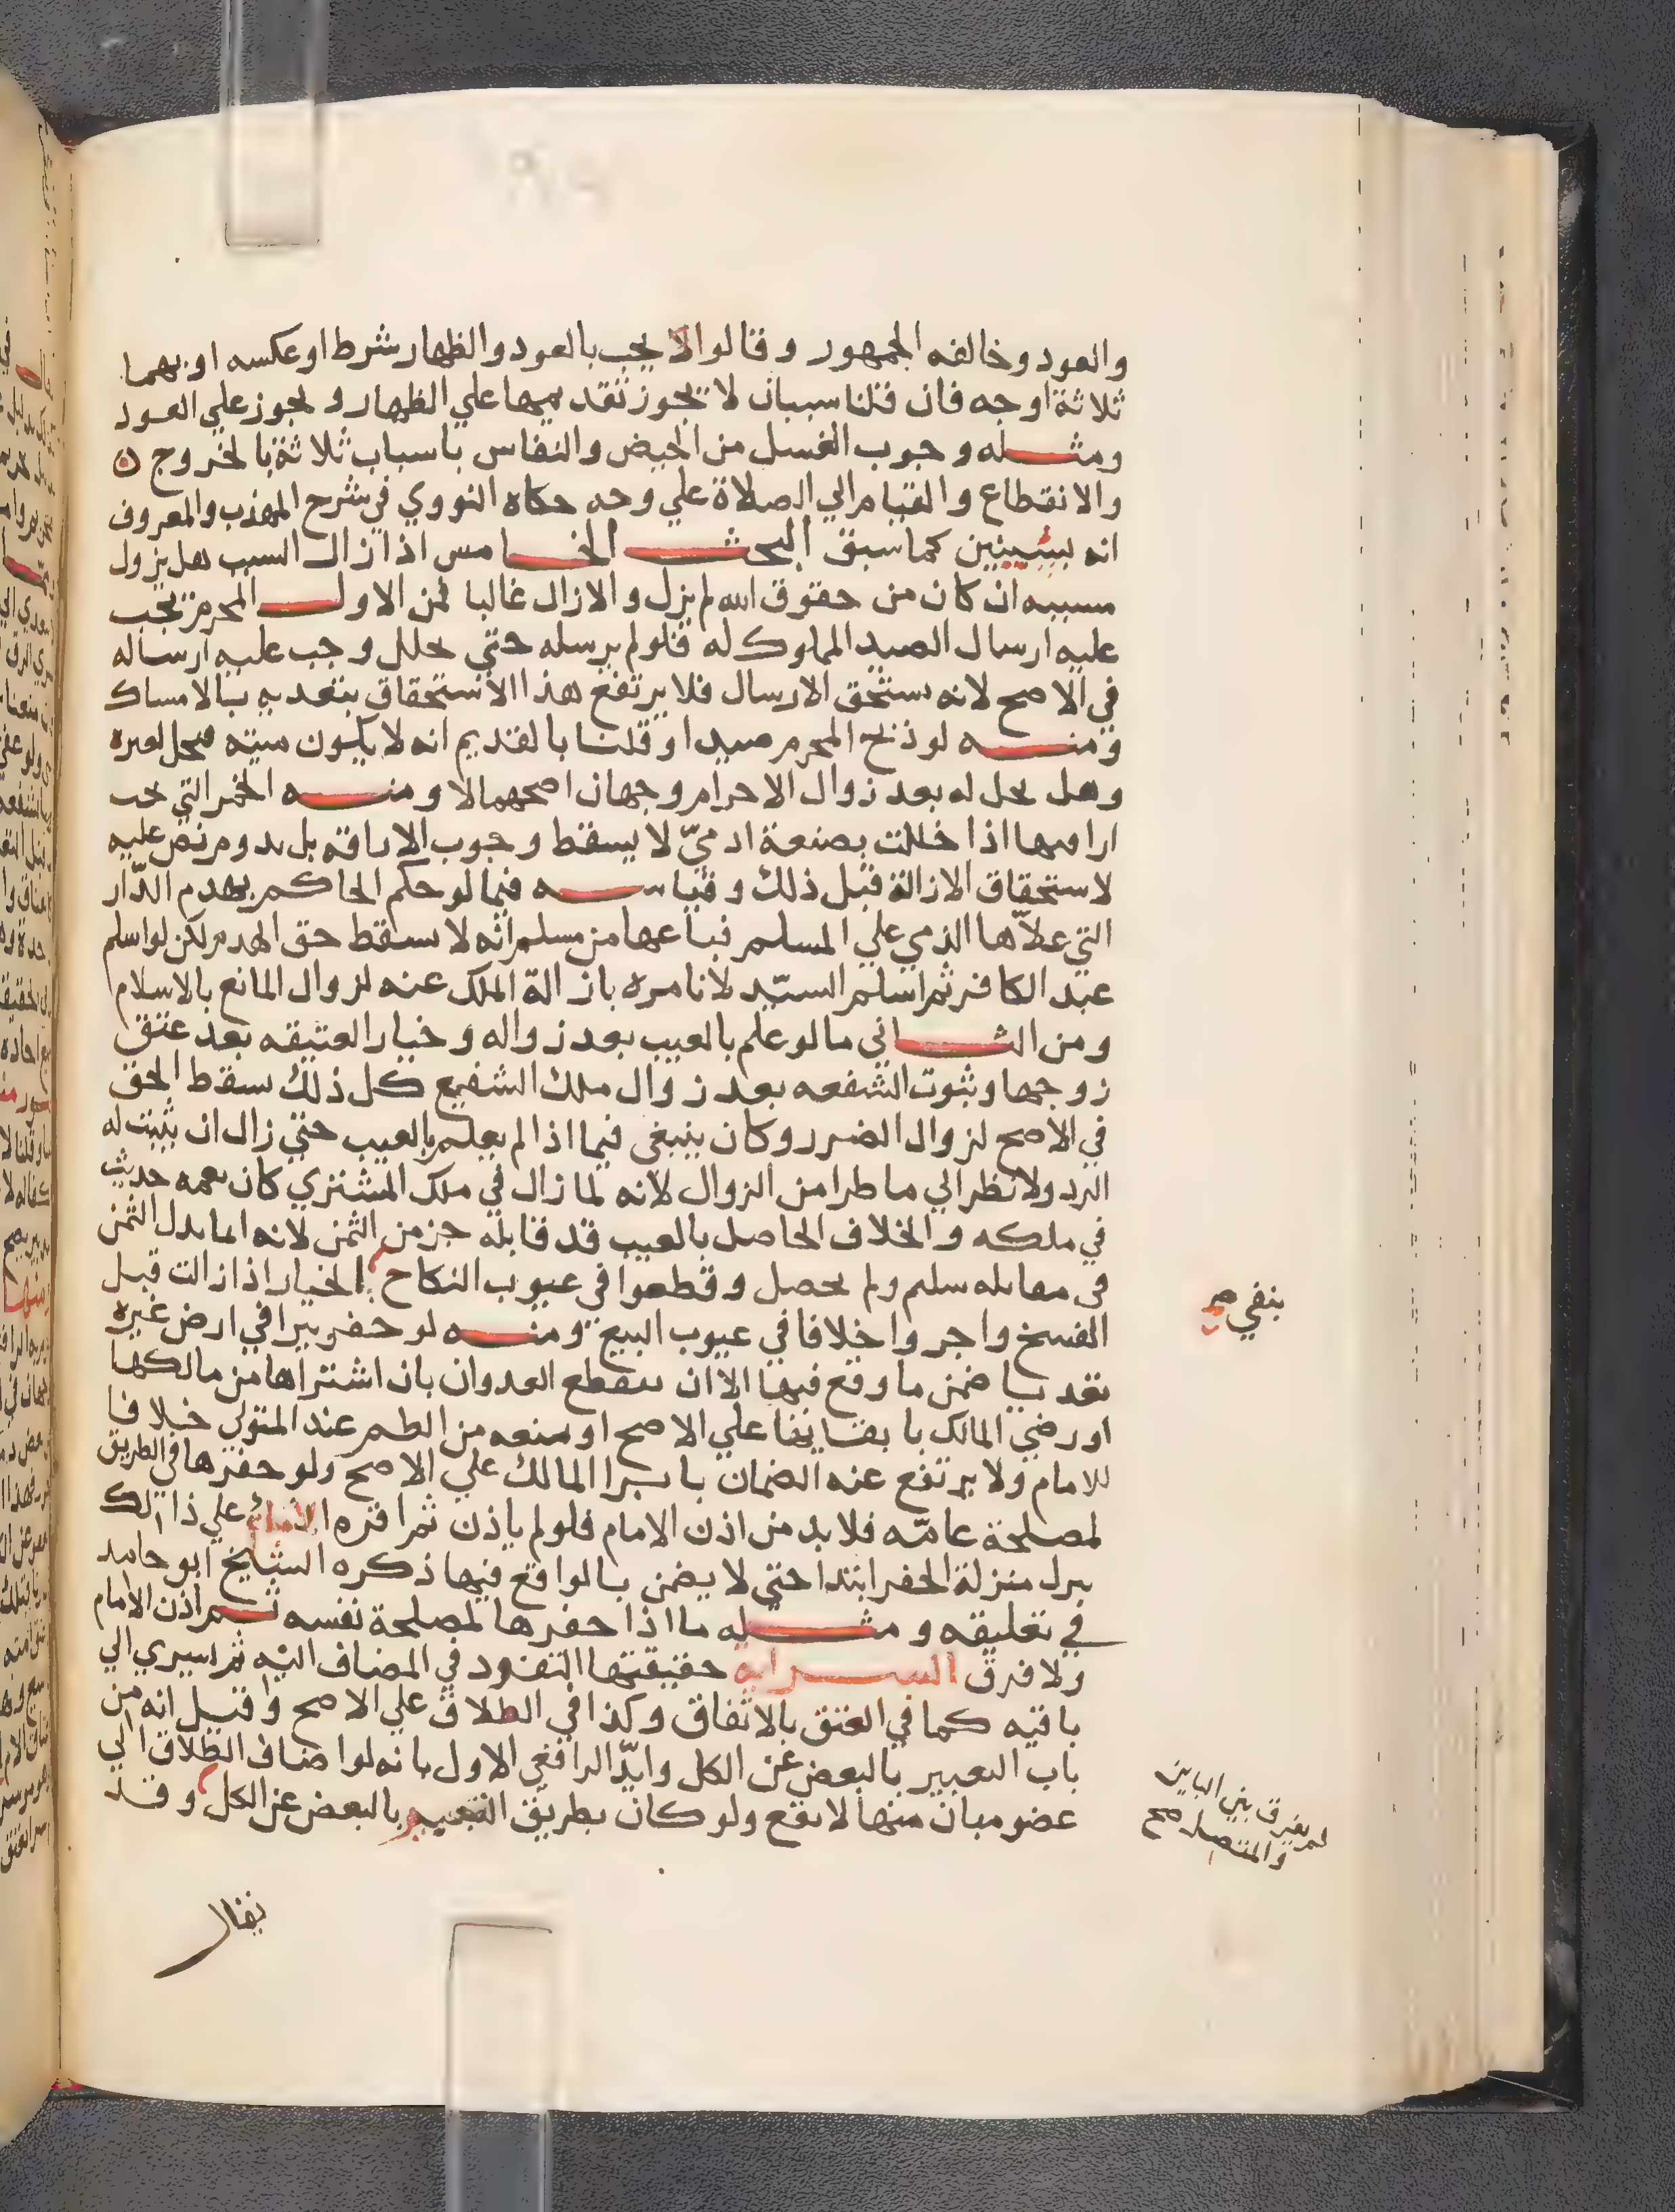 والعود وخالفه الجمهور وقالوا الا يجب بالعود والظهار شرط او عكسه او بهما
ثلاثة اوجه فان قلنا سببان لا يجوز تقديمها علي الظهار و يجوز علي العود
ومثله وجوب الغسل من الحيض والنفاس باسباب ثلاثة بالخروج ه
والانقطاع والقيام الي الصلاة علي وجه حكاه النووي في شرح المهذب والمعروف
انه بسببين كما سبق البحث الخامس اذا زال السبب هل يزول
مسببه ان كان من حقوق الله لم يزل والا زال غالبا فمن الاول المحرم يجب
عليه ارسال الصيد المملوك له فلو لم يرسله حتي تحلل وجب عليه ارساله
في الاصح لانه يستحق الارسال فلا يرتفع هذا الاستحقاق بتعديه بالامساك
ومنه لو ذبح المحرم صيدا وقلنا بالقديم انه لا يكون ميته فيحل لغيره
وهل يحل له بعد زوال الاحرام وجهان اصحهما لا ومنه الخمر التي يجب
اراقتها اذا خللت بصنعة ادميّ لا يسقط وجوب الاراقة بل يدوم نص عليه
لاستحقاق الازالة قبل ذلك وقياسه فيما لو حكم الحاكم بهدم الدّار
التي علاّها الذمي علي المسلم فباعها من مسلم انه لا يسقط حق الهدم لكن لو اسلم
عبد الكافر ثم اسلم السيّد لا نامره بازالة الملك عنه لزوال المانع بالاسلام
ومن الثاني ما لو علم بالعيب بعد زواله وخيار العتيقه بعد عتق
زوجها وثبوت الشفعه بعد زوال ملك الشفيع كل ذلك سقط الحق
في الاصح لزوال الضرر وكان ينبغي فيما اذا لم يعلم بالعيب حتي زال ان يثبت له
الرد ولا نظر الي ما طرا من الزوال لانه لما زال في ملك المشتري كان نعمه حديث
في ملكه والخلاف الحاصل بالعيب قد قابله جز من الثمن لانه انما بدل الثمن
في مقابله سليم ولم يحصل وقطعوا في عيوب النكاح الخيار اذا زالت قبل
بنفي صح
الفسخ واجروا خلافا في عيوب البيع ومنه لو حفر بيرا في ارض غيره
تعديا ضمن ما وقع فيها الا ان ينقطع العدوان بان اشتراها من مالكها
او رضي المالك بابقايها علي الاصح او منعه من الطم عند المتولي خلافا
للامام ولا يرتفع عنه الضمان بابرا المالك علي الاصح ولو حفرها في الطريق
لمصلحة عامّه فلا بد من اذن الامام فلو لم ياذن ثم اقره الامام علي ذالك
نزل منزلة الحفر ابتدا حتي لا يضمن بالواقع فيها ذكره الشيخ ابو حامد
في تعليقه ومثله ما اذا حفرها لمصلحة نفسه ثم اذن الامام
ولا فرق السرايه حقيقتها النفوذ في المضاف اليه ثم يسري الي
باقيه كما في العتق بالاتفاق وكذا في الطلاق علي الاصح وقيل انه من
باب التعبير بالبعض عن الكل وايّد الرافعي الاول بانه لو اضاف الطلاق الي
عضو مبان منها لا يقع ولو كان بطريق التعبير بالبعض عن الكل وقد
لم يفرق بين الباين
والمتصل صح
يقال